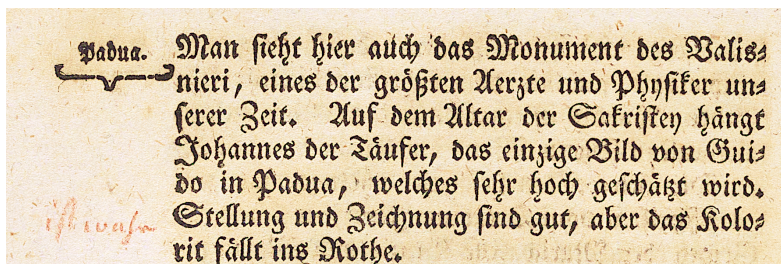 Padua.
Man sieht hier auch das Monument des Valis⸗
nieri, eines der größten Aerzte und Physiker un⸗
serer Zeit. Auf dem Altar der Sakristey hängt
Johannes der Täufer, das einzige Bild von Gui⸗
do in Padua, welches sehr hoch geschätzt wird.
Stellung und Zeichnung sind gut, aber das Kolo⸗
rit fällt ins Rothe.
ist wahr